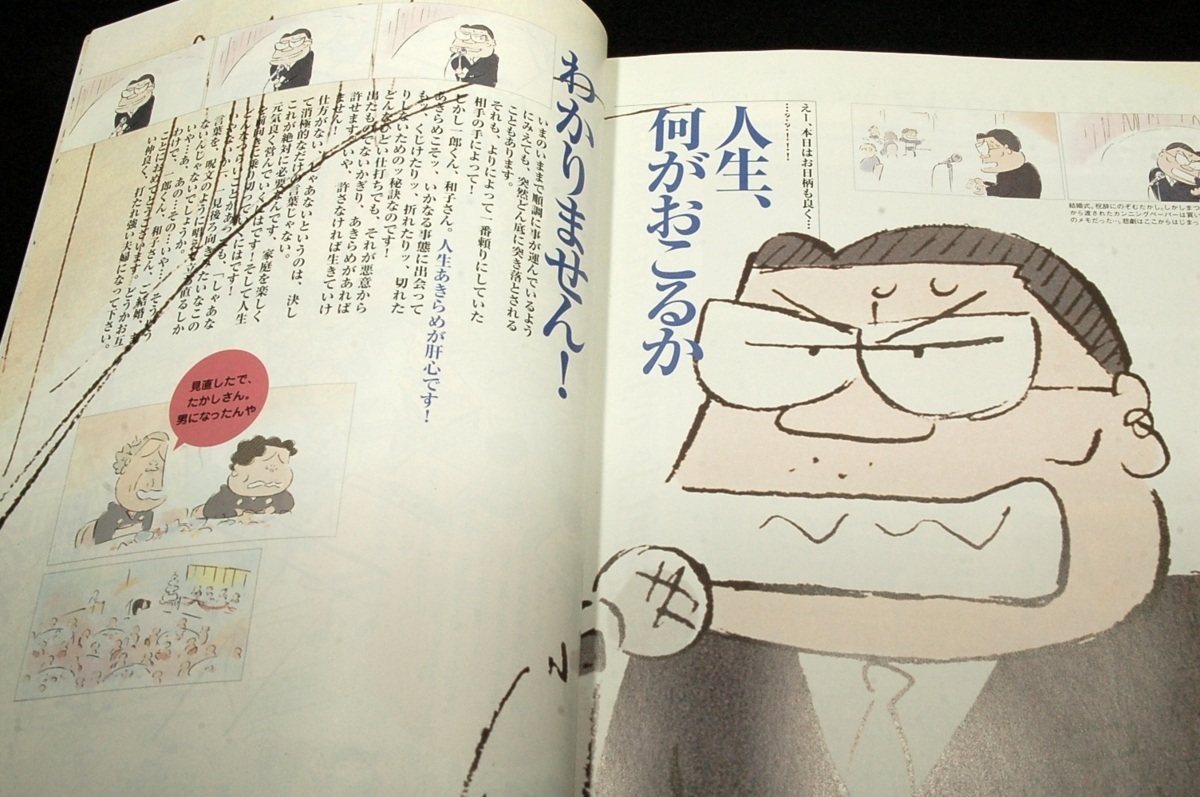 結婚式。祝辞にのぞむたかし。しかしまつ
から渡されたカンニングペーパーは買い
のメモだった…。悲劇はここからはじまっ
えー、本日はお日柄も良く…
……?…?…!…!
人生、
何がおこるか
わかりません!
いまのいままで順調に事が運んでいるよう
にみえても、突然どん底に突き落とされる
こともあります。
それも、よりによって一番頼りにしていた
相手の手によって!
しかし一郎くん、和子さん。人生あきらめが肝心です!
あきらめこそッ、いかなる事態に出会って
もッ、くじけたりッ、折れたりッ、切れた
りしないためのッ秘訣なのです!
どんなひどい仕打ちでも、それが悪意から
出たものでないかぎり、あきらめがあれば
許せます。いや、許さなければ生きていけ
ません!
仕方がない、しゃあないというのは、決し
て消極的なだけの言葉じゃない。
これが絶対に必要なんです、家庭を楽しく
元気良く営んでいくには!そして人生
を前向きに乗り切っていくには!
どんなつらいことがあっても、「しゃあな
いじゃないか」、一見後ろ向きみたいなこの
言葉を、呪文のように唱えて立ち直るしか
ないんじゃないでしょうか。
いや…あ、あの…その…いや…そういう
わけで、一郎くん、和子さん、ご結婚、ま
ことにおめでとうございます。どうかお互
い仲良く、打たれ強い夫婦になって下さい。
見直したで、
たかしさん。
男になったんや